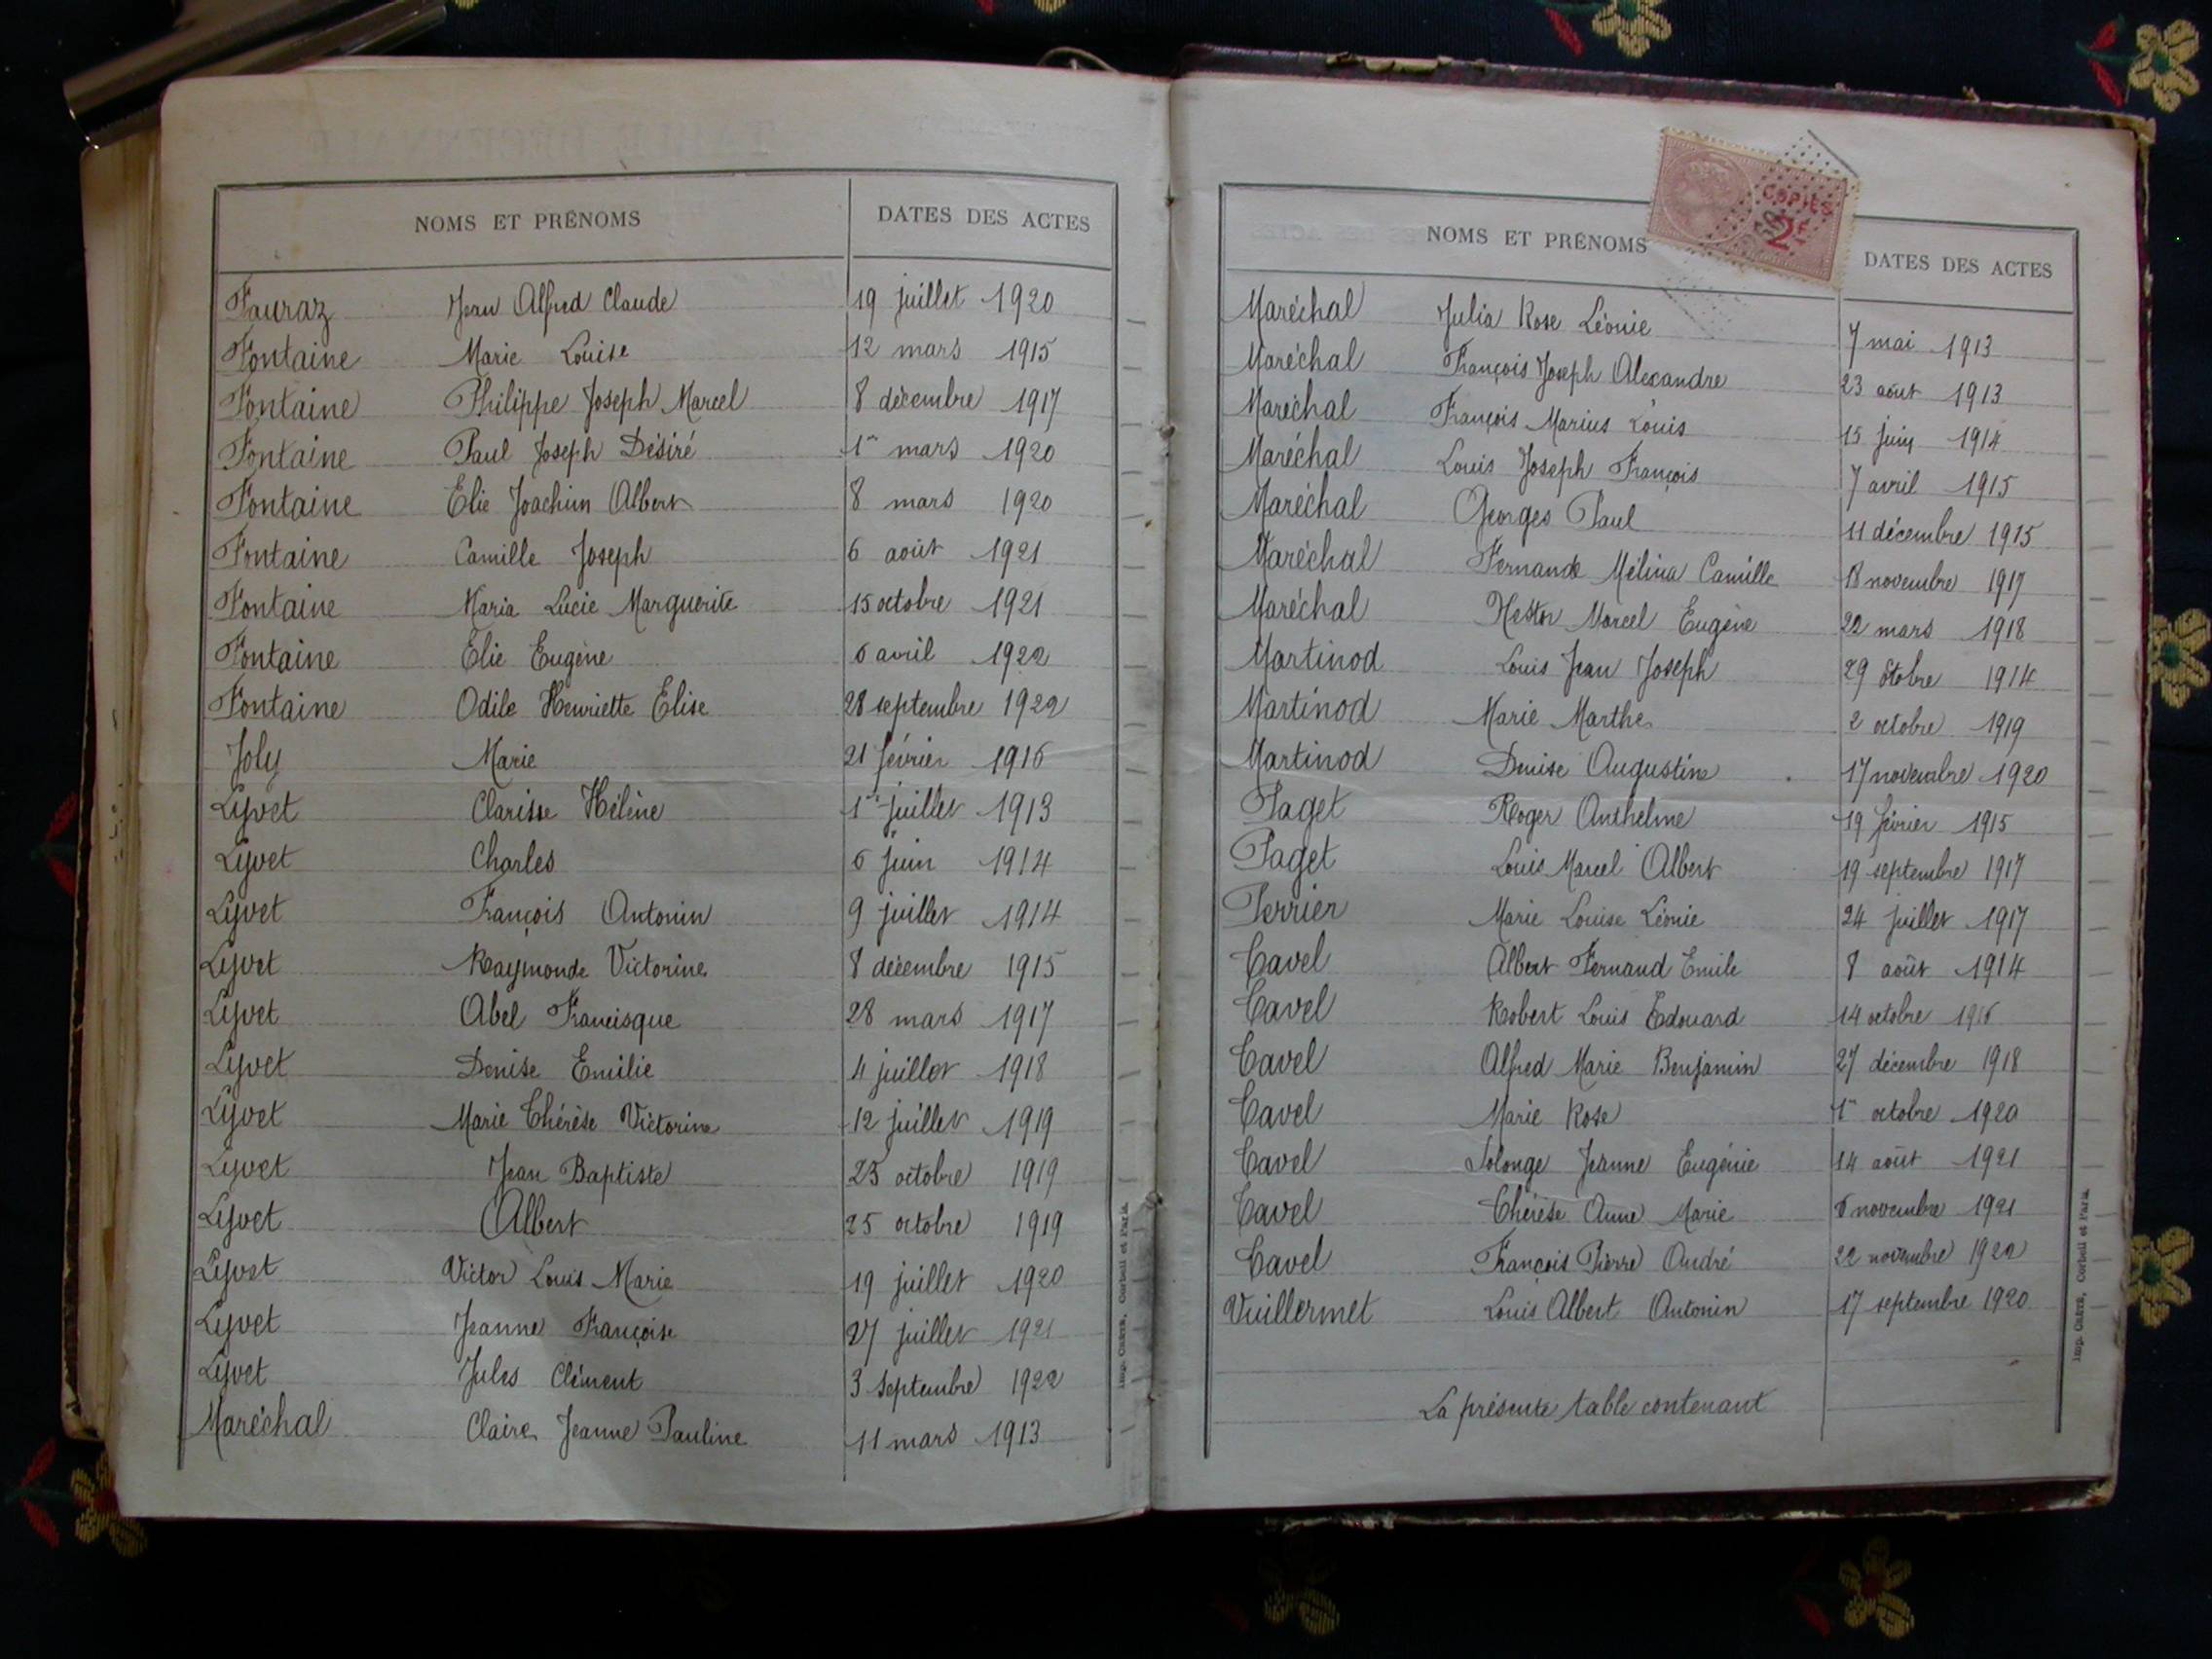 NOMS ET PRÉNOMS DATES DES ACTES
Fauraz Jean Alfred Claude 19 juillet 1920
Fontaine Marie Louise 12 mars 1915
Fontaine Philippe Joseph Marcel 8 décembre 1917
Fontaine Paul Joseph Désiré 1er mars 1920
Fontaine Elie Joachim Albert 8 mars 1920
Fontaine Camille Joseph 6 août 1921
Fontaine Maria Lucie Marguerite 15 octobre 1921
Fontaine Elie Eugène 6 avril 1922
Fontaine Odile Henriette Elise 28 septembre 1922
Joly Marie 21 février 1916
Lyvet Clarisse Hélène 1er juillet 1913
Lyvet Charles 6 juin 1914
Lyvet François Antonin 9 juillet 1914
Lyvet Raymonde Victorine 8 décembre 1915
Lyvet Abel Francisque 28 mars 1917
Lyvet Denise Emilie 4 juillet 1918
Lyvet Marie Thérèse Victorine 12 juillet 1919
Lyvet Jean Baptiste 25 octobre 1919
Lyvet Albert 25 octobre 1919
Lyvet Victor Louis Marie 19 juillet 1920
Lyvet Jeanne Françoise 27 juillet 1921
Lyvet Jules Clément 3 septembre 1922
Maréchal Claire Jeanne Pauline 11 mars 1913
Corbeil et Paris.
COPIES
2F
NOMS ET PRÉNOMS DATES DES ACTES
Maréchal Julia Rose Léonie 7 mai 1913
Maréchal François Joseph Alexandre 23 août 1913
Maréchal François Marius Louis 15 juin 1914
Maréchal Louis Joseph François 7 avril 1915
Maréchal Georges Paul 11 décembre 1915
Maréchal Fernande Mélina Camille 18 novembre 1917
Maréchal Nestor Marcel Eugène 22 mars 1918
Martinod Louis Jean Joseph 29 octobre 1914
Martinod Marie Marthe 2 octobre 1919
Martinod Denise Augustine 17 novembre 1920
Paget Roger Anthelme 19 février 1915
Paget Louis Marcel Albert 19 septembre 1917
Perrier Marie Louise Léonie 24 juillet 1917
Tavel Albert Fernand Emile 8 août 1914
Tavel Robert Louis Edouard 14 octobre 1916
Tavel Alfred Marie Benjamin 27 décembre 1918
Tavel Marie Rose 1er octobre 1920
Tavel Solange Jeanne Eugénie 14 août 1921
Tavel Thérèse Anne Marie 6 novembre 1921
Tavel François Pierre André 22 novembre 1922
Vuillermet Louis Albert Antonin 17 septembre 1920
La présente table contenant
Corbeil et Paris.